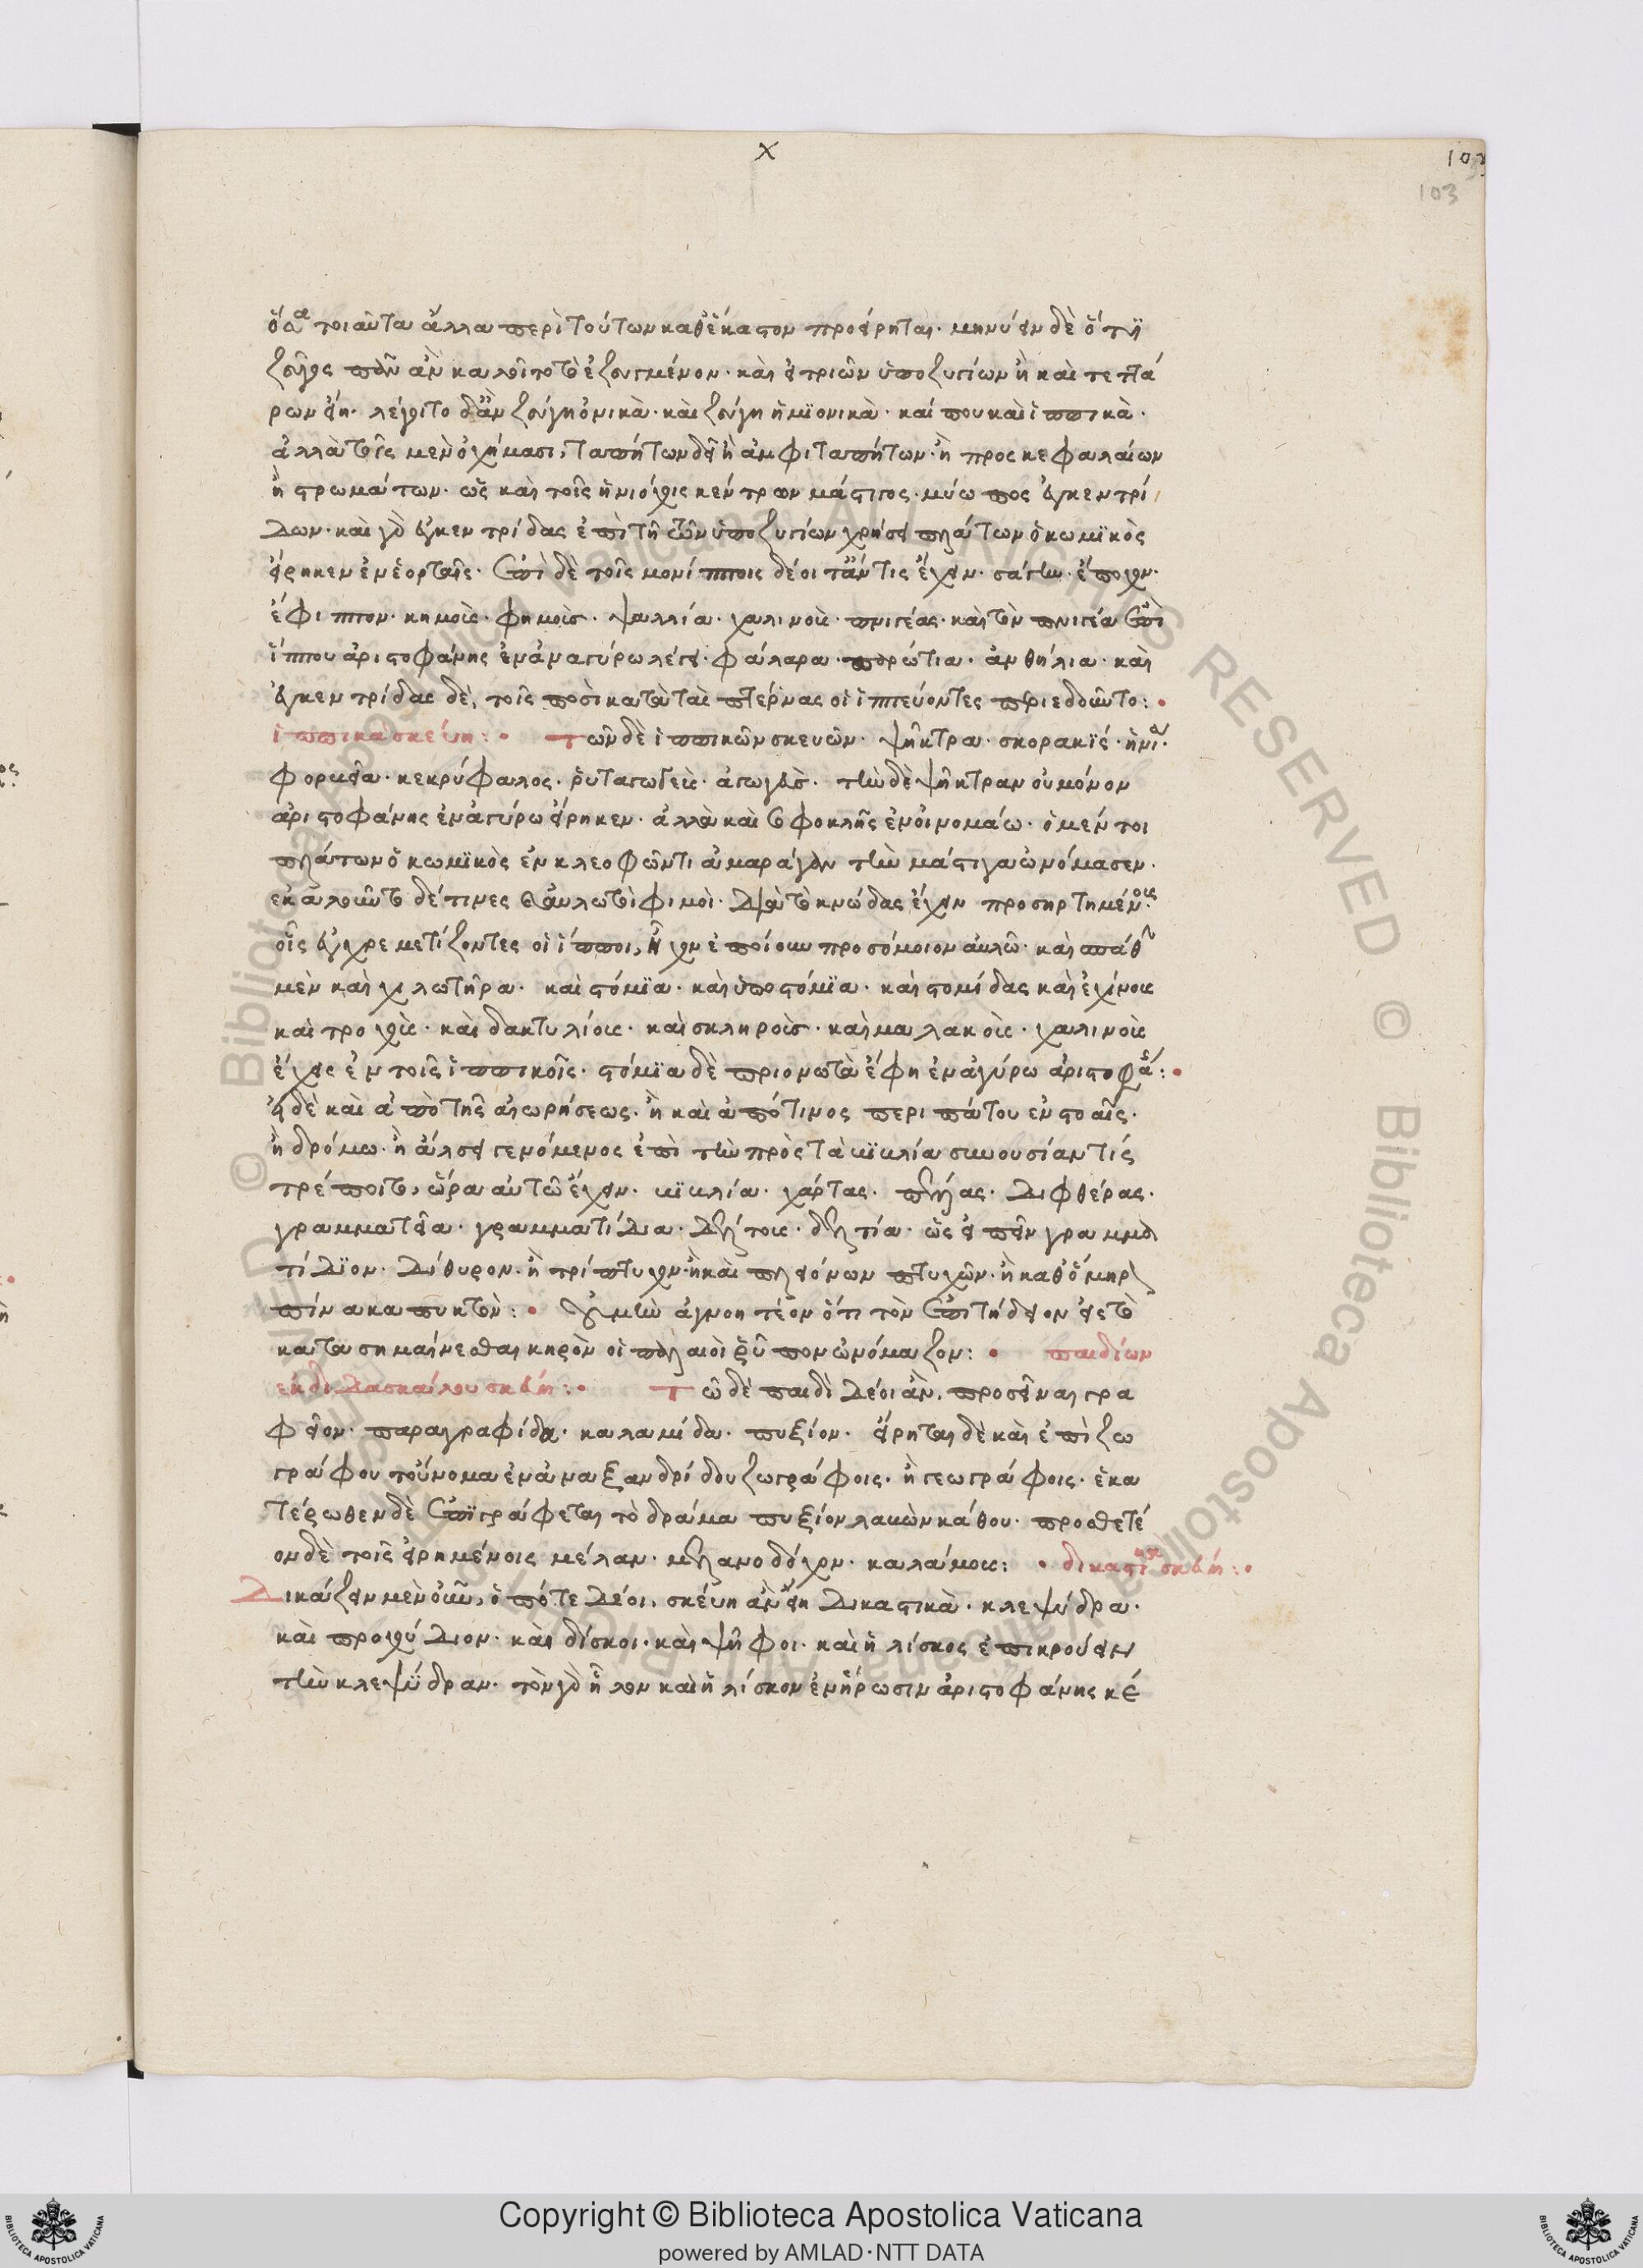 x
103
103
ὅσα τοιαῦτα ἄλλα περὶ τούτων καθ' ἕκαστον προείρηται· μηνύειν δὲ ὅτι
ζεῦγος πᾶν ἂν καλοῖτο τὸ ἐζευγμένον· καὶ ἐκ τριῶν ὑποζυγίων ἢ καὶ τεττά
ρων εἴη· λέγοιτο δ' ἂν ζεύγη ὀνικὰ· καὶ ζεύγη ἡμϊονικὰ· καί που καὶ ἱππικὰ·
ἀλλὰ τοῖς μὲν ὀχήμασι, ταπήτων δεῖ ἢ ἀμφιταπήτων· ἢ προσκεφαλαίων
ἢ στρωμάτων· ὡς καὶ τοῖς ἡνιόχοις κέντρων μάστιγος· μύωπος ἐγκεντρί
δων· καὶ γὰρ ἐγκεντρίδας ἐπὶ τῇ τῶν ὑποζυγίων χρήσει πλάτων ὁ κωμϊκὸς
εἴρηκεν ἐν ἑορταῖς· ἐπὶ δὲ τοῖς μονίπποις δέοι τἄν τις ἔχειν· σάγην· ἔποχον·
ἔφιππον· κημοὺς· φημοὺς· ψαλλία· χαλινοὺς· πνιγέας· καὶ τὸν πνιγέα ἐπὶ
ἵππου ἀριστοφάνης ἐν ἀναγύρω λέγει· φάλαρα· πρώτια· ἀνθήλια· καὶ
ἐγκεντρίδας δὲ, τοῖς ποσὶ κατὰ τὰς πτέρνας οἱ ἱππεύοντες περιεδοῦντο:
ἱππικα σκεύη: Τῶν δὲ ἱππικῶν σκευῶν· ψήκτρα· σκορακϊς· ἡνία·
φορβεία· κεκρύφαλος· ῥυταγωγεὺς· ἀγωγεὺς· τὴν δὲ ψήκτραν οὐ μόνον
ἀριστοφάνης ἐν ἀγύρω εἴρηκεν· ἀλλὰ καὶ σοφοκλῆς ἐν οἰνομάω· ὁ μέν τοι
πλάτων ὁ κωμϊκὸς ἐν κλεοφῶντι ἀμαράγδην τὴν μάστιγα ὠνόμασεν·
ἐκαλοῦντο δέ τινες αὐλωτοὶ φιμοὶ· διὰ τὸ κνώδας ἔχειν προσηρτημένους·
οἷς ἐγχρεμετίζοντες οἱ ἵπποι, ἦχον ἐποίουν προσόμοιον αὐλῶ· καὶ σπάθην
μὲν καὶ χιλωτῆρα· καὶ στόμϊα· καὶ ὑποστόμϊα· καὶ στομίδας καὶ ἐχίνους
καὶ τροχοὺς· καὶ δακτυλίους· καὶ σκληροὺς· καὶ μαλακοὺς· χαλινοὺς
ἔχεις ἐν τοῖς ἱππικοῖς· στόμϊα δὲ πριονωτὰ ἔφη ἐν ἀγύρω ἀριστοφά:
εἰ δὲ καὶ ἀπὸ τῆς αἰωρήσεως· ἢ καὶ ἀπό τινος περιπάτου ἐν στοαῖς·
ἢ δρόμω· ἢ ἄλσει γενόμενος ἐπὶ τὴν πρὸς τὰ βϊβλία συνουσίαν τίς
τρέποιτο, ὥρα αὐτῶ ἔχειν· βϊβλία· χάρτας· πλείας· διφθέρας·
γραμματεῖα· γραμματίδια· δέλτους· δελτία· ὡς εἰπεῖν γραμμα
τίδϊον· δίθυρον· ἢ τρίπτυχον· ἢ καὶ πλειόνων πτυχῶν· ἢ καθ' ὅμηρον
πίνακα πυκτὸν: οὐ μὴν ἀγνοητέον ὅτι τὸν ἐπιτήδειον εἰς τὸ
κατασημαίνεσθαι κηρὸν οἱ παλαιοὶ ῥύπον ὠνόμαζον: παιδίων
ἐκ διδασκάλου σκεύη: Τῶ δὲ παιδὶ δέοι ἂν, προσεῖναι γρα
φεῖον· παραγραφίδα· καλαμίδα· πυξίον· εἴρηται δὲ καὶ ἐπὶ ζω
γράφου τοὔνομα ἐν ἀναξανδρίδου ζωγράφοις· ἢ γεωγράφοις· ἑκα
τέρωθεν δὲ ἐπϊγράφεται τὸ δράμα πυξίον λαβὼν κάθου· προσθετέ
ον δὲ τοῖς εἰρημένοις μέλαν· μελανοδόχον· καλάμους: δικαστικα σκεύη:
Δικάζειν μὲν οὖν, ὁπότε δέοι, σκεύη ἂν εἴη δικαστικὰ· κλεψύδρα·
καὶ προχύδιον· καὶ δίσκοι· καὶ ψῆφοι· καὶ ἡλίσκος ἐπικρούειν
τὴν κλεψϋδραν· τὸν γὰρ ἧλον καὶ ἡλίσκον ἐν ἥρωσιν ἀριστοφάνης κέ
Copyright © Biblioteca Apostolica Vaticana
powered by AMLAD·NTT DATA